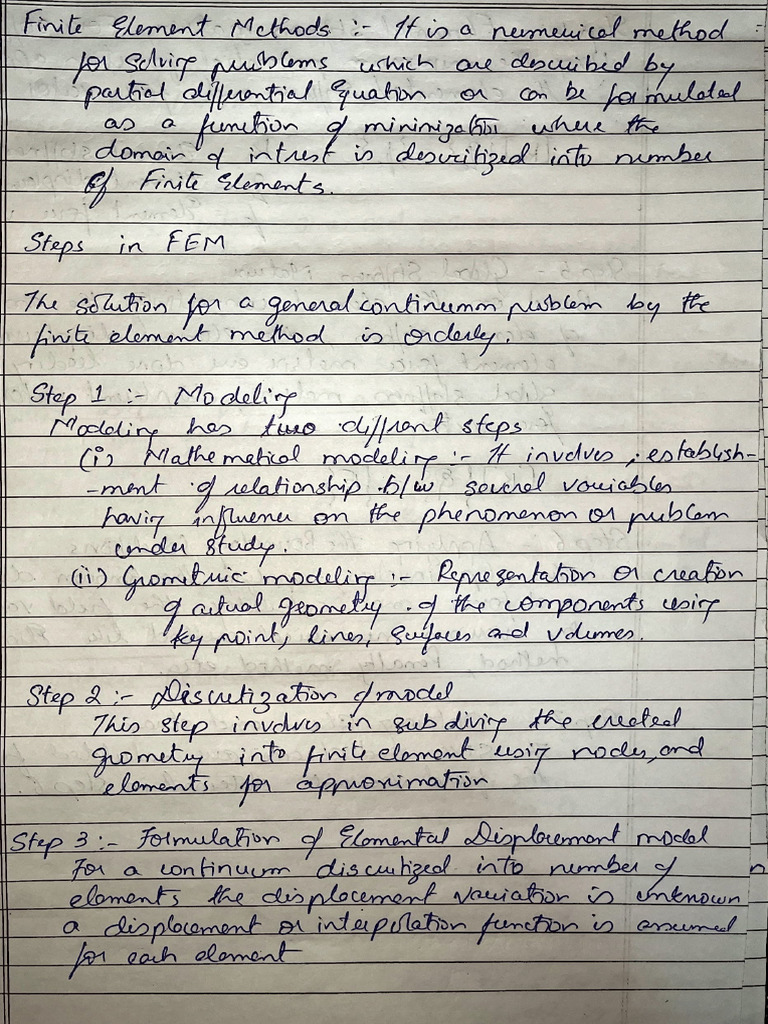 Finite Element Methods :- It is a numerical method
for solving problems which are described by
partial differential Equation or can be formulated
as a function of minimization where the
domain of intrest is descritized into number
of Finite Elements.
Steps in FEM
The solution for a general continumm problem by the
finite element method is orderly.
Step 1 :- Modeling
Modeling has two different steps
(i) Mathematical modeling :- It involves establish-
-ment of relationship b/w several variables
having influence on the phenomenon or problem
under study.
(ii) Geometric modeling :- Representation or creation
of actual geometry of the components using
key point, lines, surfaces and volumes.
Step 2 :- Discretization of model
This step involves in subdiving the created
geometry into finite element using nodes, and
elements for approximation
Step 3 :- Formulation of Elemental Displacement model
For a continuum discretized into number of
elements the displacement variation is unknown
a displacement or interpolation function is assumed
for each element